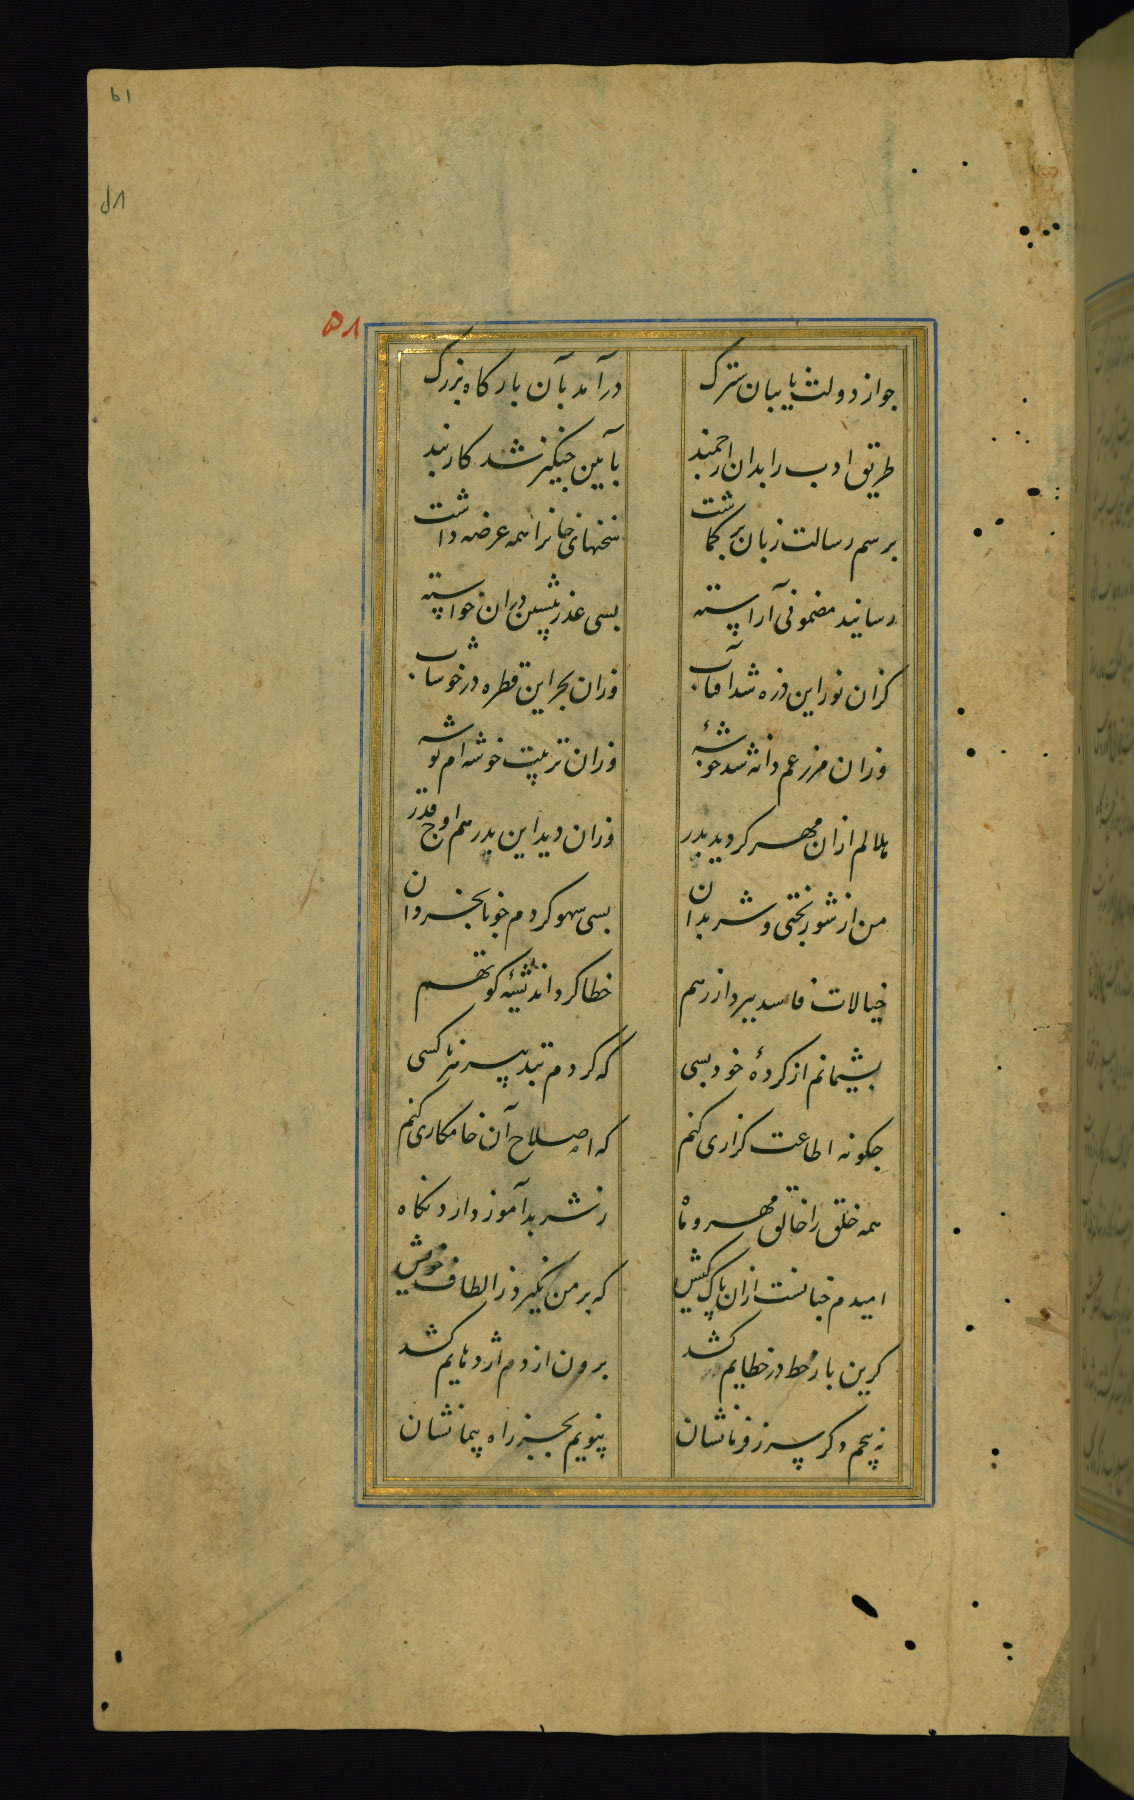 ۵۸
جواز دولت یابیان سترک
درآمد بآن بارکاه بزرک
طریق ادب را بدان راحمند
بآیین جنکیز شد کاربند
برسم رسالت زبان برکماشت
سخنهای خانرا همه عرضه داشت
رسانید مضمونی آراسته
بسی عذر پیشین دران خواسته
کزان نور این ذره شد آفتاب
وزان بحر این قطره در خوشاب
وزان مزرعم دانه شد خوشهٔ
وزان تربیت خوشه ام توشه
هلالم ازان مهر کردید بدر
وزان دید این بدر هم اوج قدر
من از شوربختی و شر بدان
بسی سهو کردم خود با بخردان
خیالات فاسد ببرد از رهم
خطا کرد اندیشهٔ کوتهم
پشیمانم از کردهٔ خود بسی
که کردم تدبیر هر ناکسی
جکونه اطاعت کزاری کنم
که اصلاح آن خامکاری کنم
همه خلق را خالق مهر و ماه
ز شر بدآموز دارد نکاه
امیدم جنانست ازان پاک کیش
که بر من نکیرد ز الطاف خویش
کزین بار خط در خطایم کشد
برون از دم اژدهایم کشد
نه پیچم دکر سر ز فرمانشان
نپویم بجز راه پیمانشان